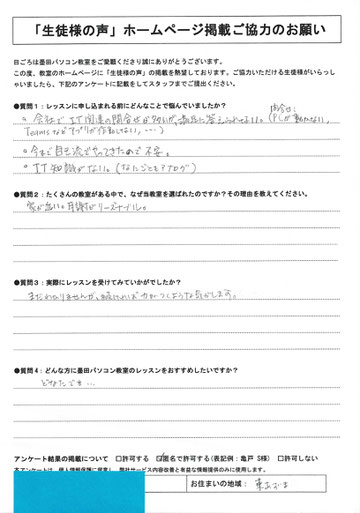 「生徒様の声」ホームページ掲載ご協力のお願い
日ごろは墨田パソコン教室をご愛顧くださり誠にありがとうございます。
この度、教室のホームページに「生徒様の声」の掲載を熱望しております。ご協力いただける生徒様がいらっし
ゃいましたら、下記のアンケートに記載をしてスタッフまでご提出ください。
●質問1：レッスンに申し込まれる前にどんなことで悩んでいましたか？
・会社でIT関連の問合せが多いが、
Teamsなどアプリが作動しない、…)
・今まで自己流でやってきたので不安。
・IT知識がない。(なにごともアナログ)
●質問2：たくさんの教室がある中で、なぜ当教室を選ばれたのですか？その理由を教えてください。
家が近い。月謝がリーズナブル。
●質問3：実際にレッスンを受けてみていかがでしたか？
まだわかりませんが、続ければ力がつくような気がします。
●質問4：どんな方に墨田パソコン教室のレッスンをおすすめしたいですか？
どなたでも…
アンケート結果の掲載について □許可する ☑匿名で許可する(表記例：亀戸 S様) □許可しない
本アンケートは、個人情報保護に留意し、弊社サービス内容改善と有益な情報提供のみに使用します。
お住まいの地域： 東あずま